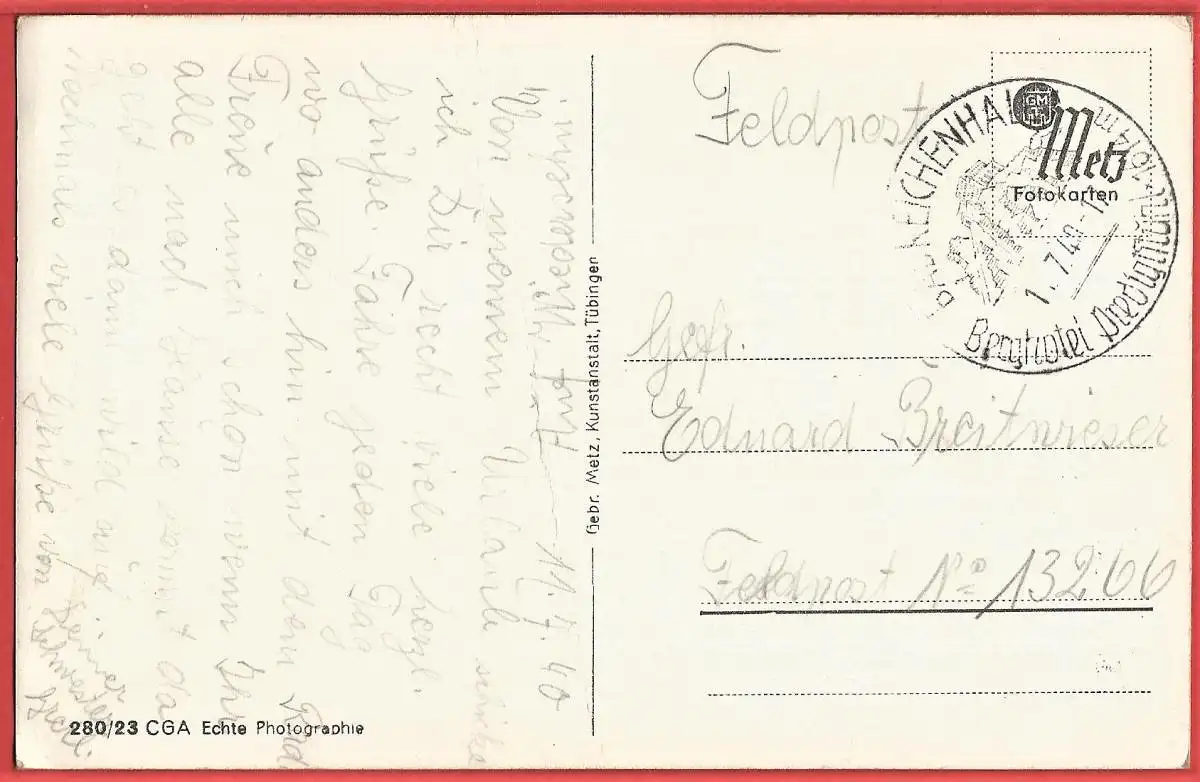 Auf 11.7.40
Von meinem Urlaub schicke
ich Dir recht viele herzl.
Grüße. Fahre jeden Tag
wo anders hin mit dem Rad
Freue mich schon wenn Ihr
alle nach Hause kommt da
geht es dann wild auf
nochmals viele Grüße von
Deiner
Schwester
280/23 CGA Echte Photographie
Gebr. Metz, Kunstanstalt, Tübingen
Feldpost
BAD REICHENHALL
GM
T
Metz
Fotokarten
7.40
Berghotel Predigtstuhl
Gefr.
Eduard Breitwieser
Feldpost No 13266